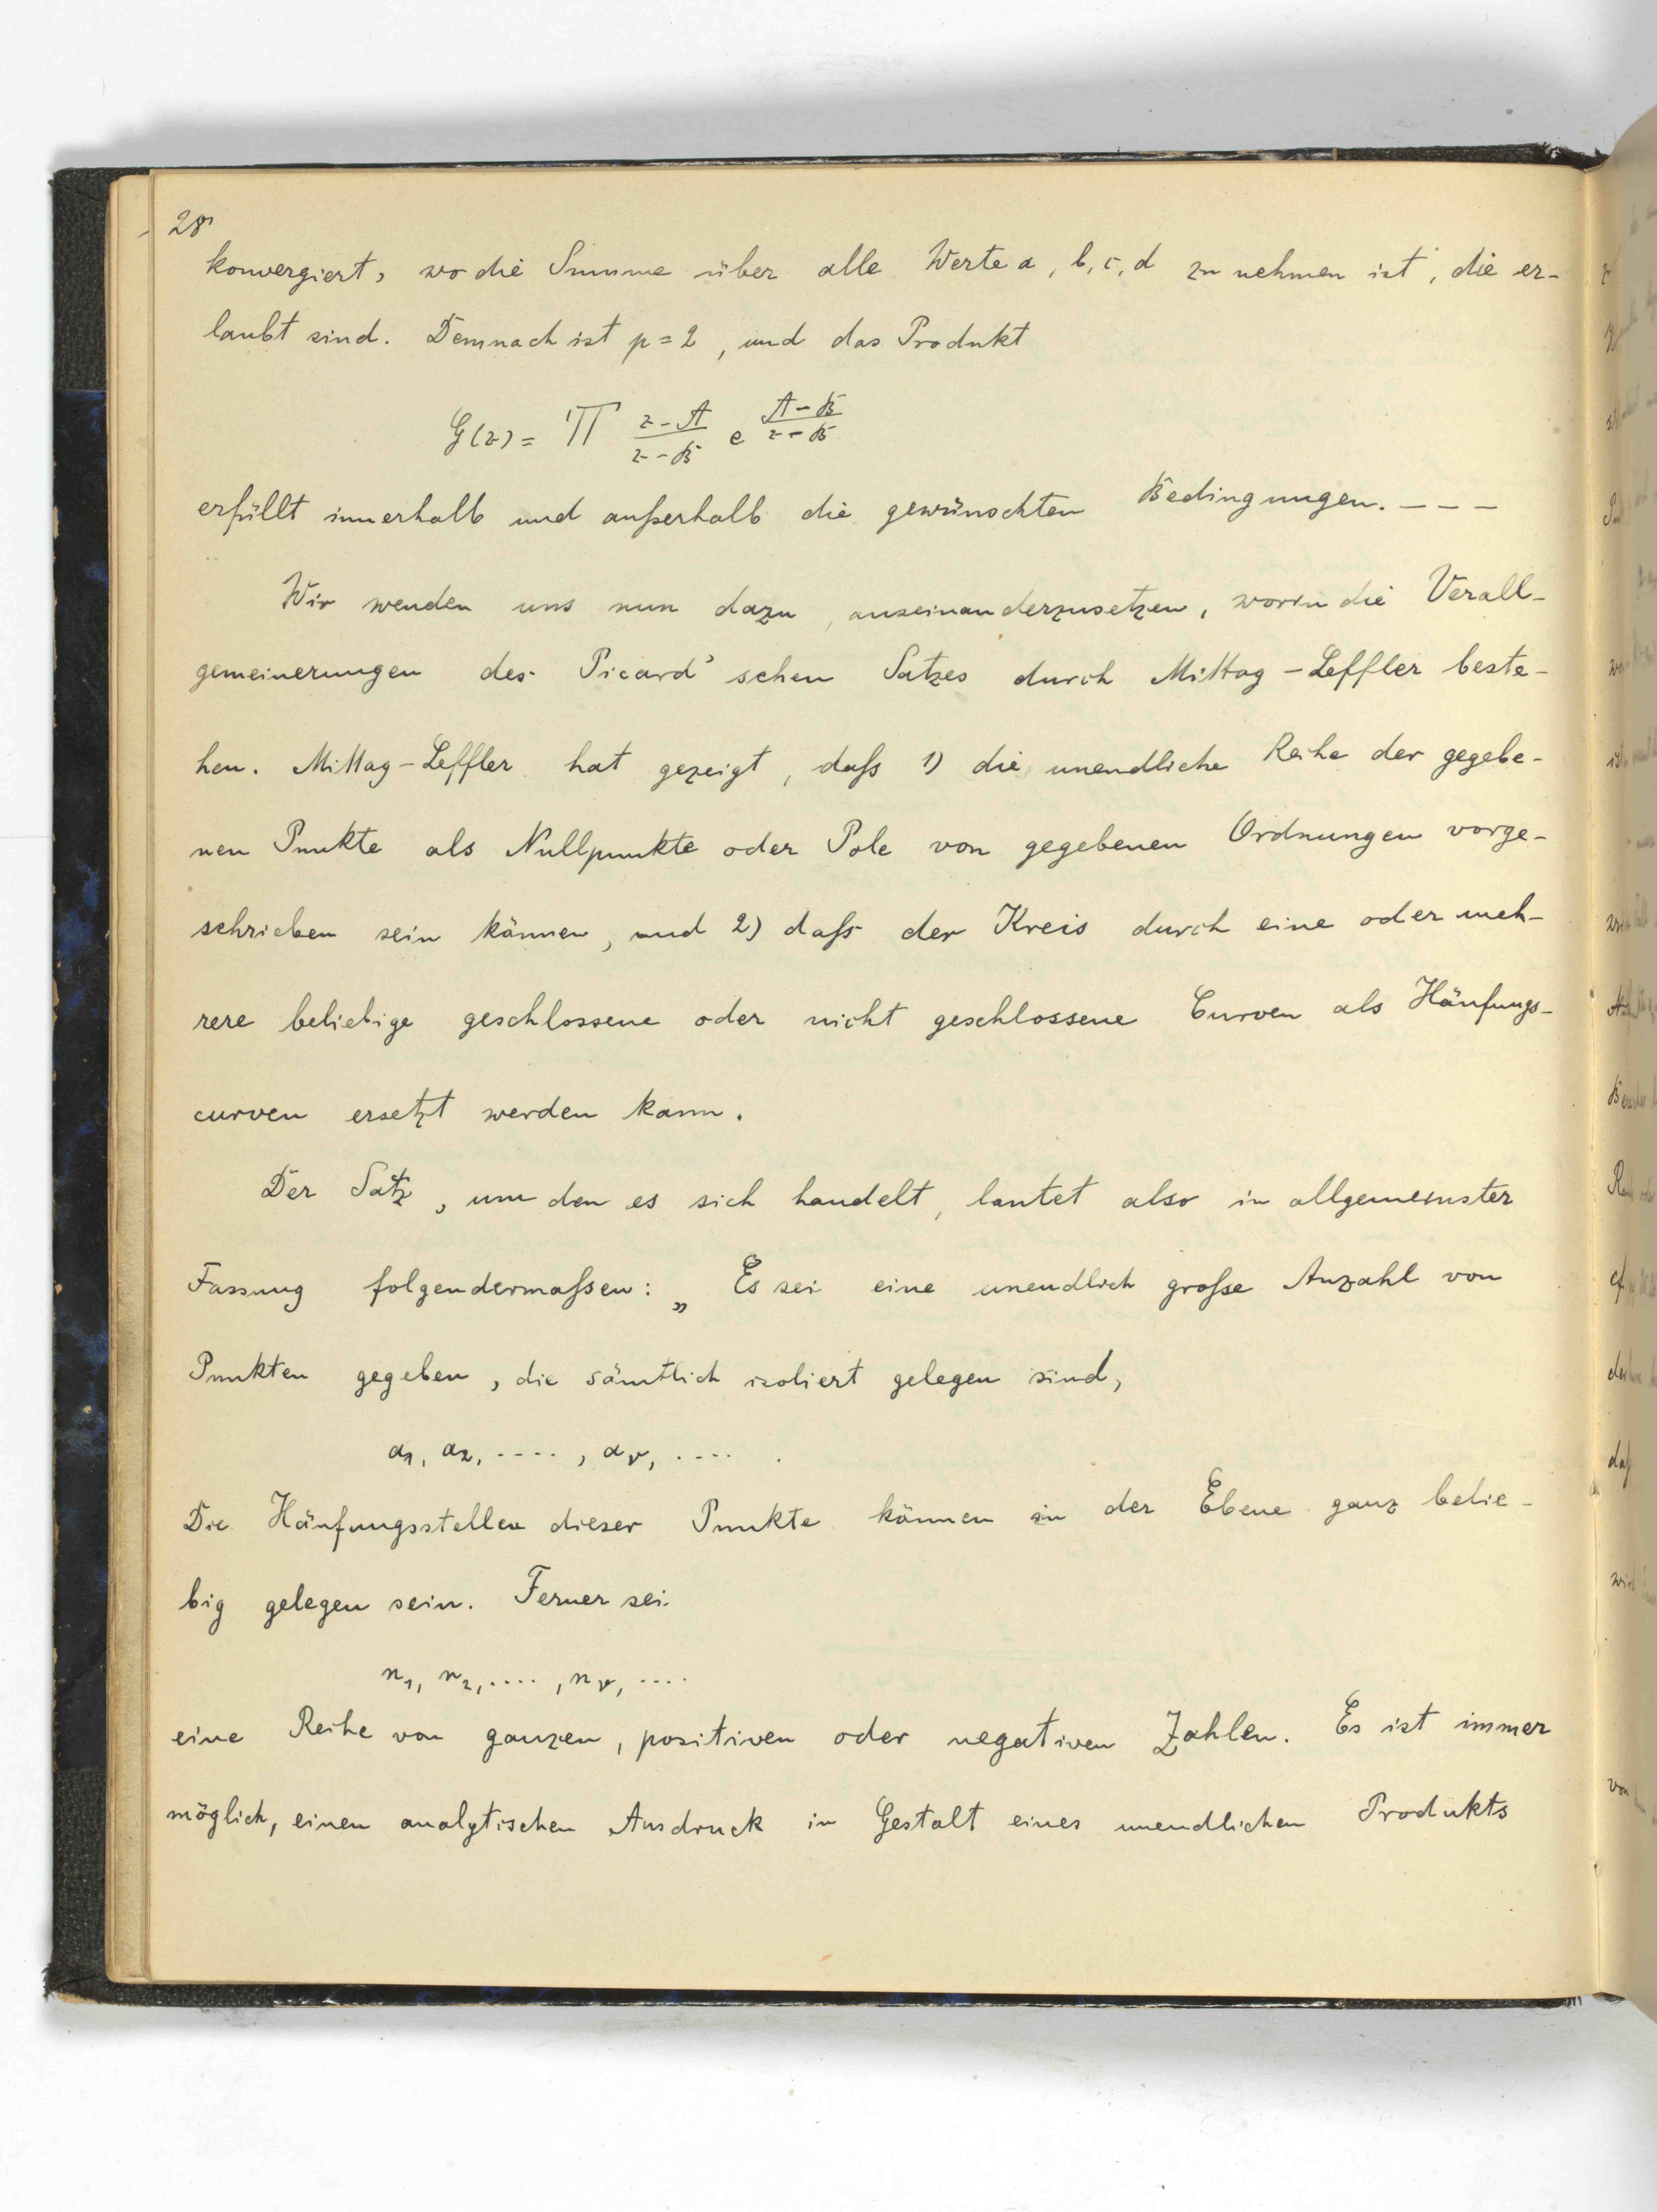 28
konvergiert, wo die Summe über alle Werte a, b, c, d zu nehmen ist, die er-
laubt sind. Demnach ist p = 2, und das Produkt
G(z) = ∏ (z-A)/(z-B) e^{(A-B)/(z-B)}
erfüllt innerhalb und außerhalb die gewünschten Bedingungen. — — —
Wir wenden uns nun dazu, auseinanderzusetzen, worin die Verall-
gemeinerungen des Picard'schen Satzes durch Mittag-Leffler beste-
hen. Mittag-Leffler hat gezeigt, daß 1) die unendliche Reihe der gegebe-
nen Punkte als Nullpunkte oder Pole von gegebenen Ordnungen vorge-
schrieben sein können, und 2) daß der Kreis durch eine oder meh-
rere beliebige geschlossene oder nicht geschlossene Curven als Häufungs-
curven ersetzt werden kann.
Der Satz, um den es sich handelt, lautet also in allgemeinster
Fassung folgendermaßen: „Es sei eine unendlich große Anzahl von
Punkten gegeben, die sämtlich isoliert gelegen sind,
a₁, a₂, ...., aᵥ, .... .
Die Häufungsstellen dieser Punkte können in der Ebene ganz belie-
big gelegen sein. Ferner sei
n₁, n₂, ...., nᵥ, ....
eine Reihe von ganzen, positiven oder negativen Zahlen. Es ist immer
möglich, einen analytischen Ausdruck in Gestalt eines unendlichen Produkts